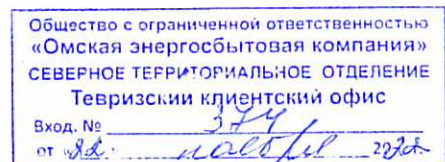 Общество с ограниченной ответственностью
«Омская энергосбытовая компания»
СЕВЕРНОЕ ТЕРРИТОРИАЛЬНОЕ ОТДЕЛЕНИЕ
Тевризский клиентский офис
Вход. № 374
от 22. ноября